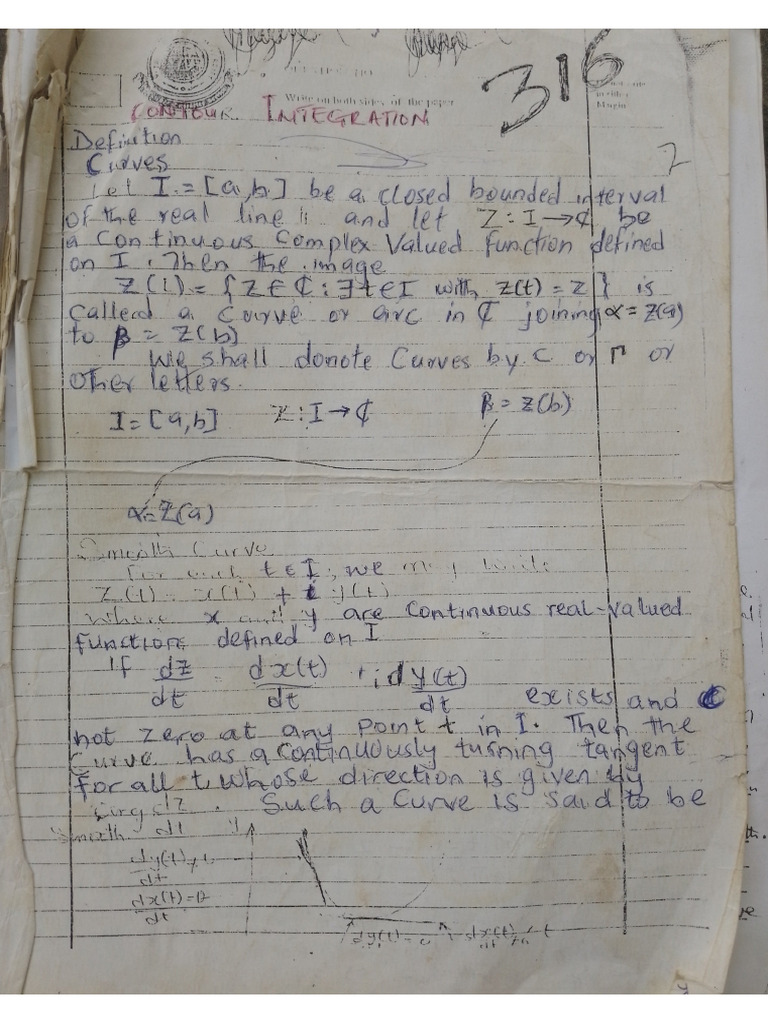 316
Write on both sides of the paper
CONTOUR INTEGRATION
2
Definition
Curves
Let I = [a,b] be a closed bounded interval
of the real line and let Z : I → ¢ be
a continuous complex valued function defined
on I. Then the image
Z(I) = { Z ∈ ¢ : ∃ t ∈ I with z(t) = z } is
called a curve or arc in ¢ joining α = z(a)
to β = z(b)
We shall donote Curves by C or Γ or
other letters.
I = [a,b] Z : I → ¢ β = z(b)
α = Z(a)
Smooth Curve
For each t ∈ I, we may write
Z(t) = x(t) + i y(t)
where x and y are continuous real-valued
functions defined on I
If dz/dt dx(t)/dt + i dy(t)/dt exists and
not zero at any point t in I. Then the
Curve has a continuously turning tangent
for all t, whose direction is given by
arg dz/dt. Such a Curve is said to be
Smooth y
dy(t)/dt
dx(t)/dt = 0
dy(t) = 0 dx(t)/dt